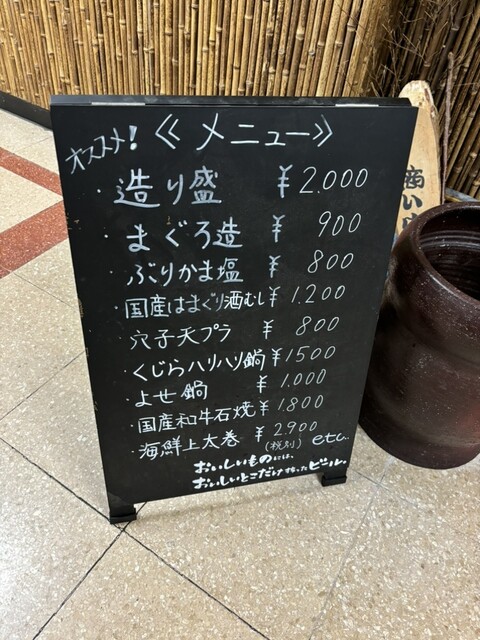 オススメ!《メニュー》
・造り盛 ¥2.000
・まぐろ造 ¥900
・ぶりかま塩 ¥800
・国産はまぐり酒むし ¥1.200
・穴子天プラ ¥800
・くじらハリハリ鍋 ¥1500
・よせ鍋 ¥1.000
・国産和牛石焼 ¥1.800
・海鮮上大巻 ¥2.900
(税別) etc.
おいしいものには、
おいしいとこだけ搾ったビール。
商い中